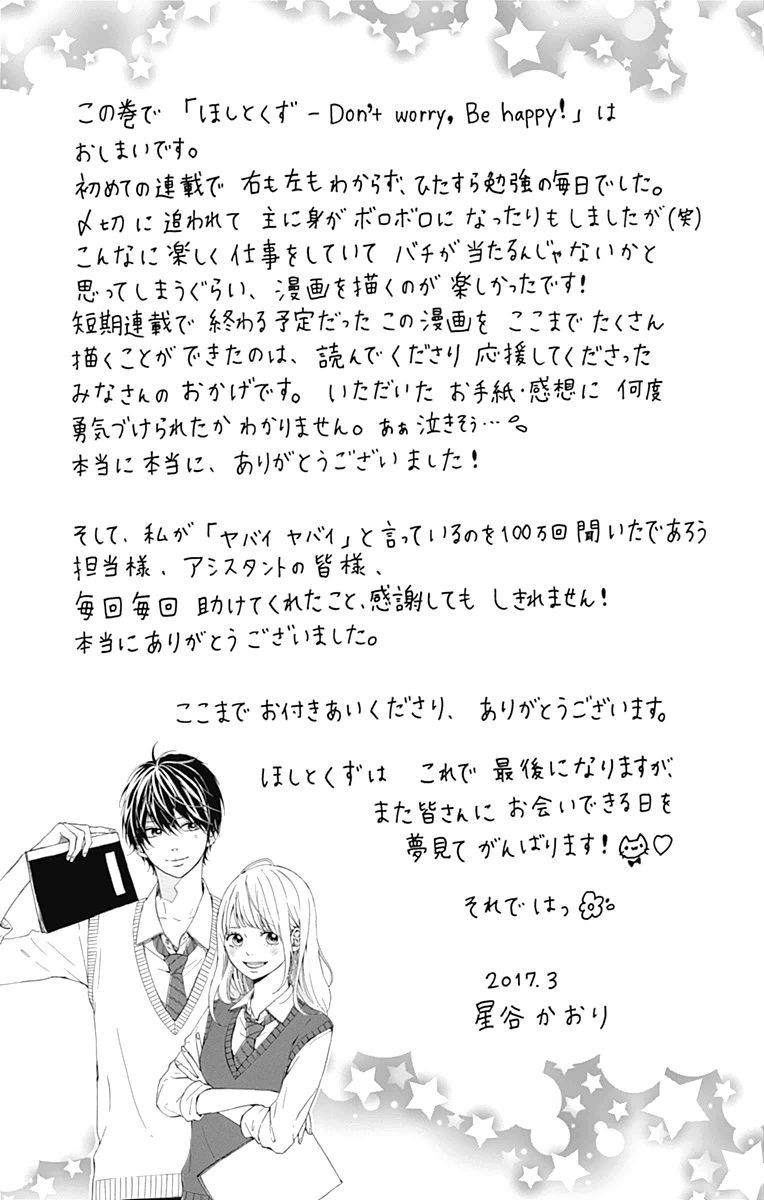 この巻で「ほしとくず – Don't worry, Be happy!」は
おしまいです。
初めての連載で 右も左もわからず、ひたすら勉強の毎日でした。
〆切に追われて 主に身がボロボロになったりもしましたが(笑)
こんなに楽しく仕事をしていて バチが当たるんじゃないかと
思ってしまうぐらい、漫画を描くのが楽しかったです!
短期連載で終わる予定だったこの漫画を ここまでたくさん
描くことができたのは、読んでくださり応援してくださった
みなさんのおかげです。いただいた お手紙・感想に 何度
勇気づけられたかわかりません。あぁ泣きそう…
本当に本当に、ありがとうございました!
そして、私が「ヤバイヤバイ」と言っているのを100万回聞いたであろう
担当様、アシスタントの皆様、
毎回毎回 助けてくれたこと、感謝してもしきれません!
本当にありがとうございました。
ここまでお付きあいくださり、ありがとうございます。
ほしとくずは これで最後になりますが、
また皆さんに お会いできる日を
夢見て がんばります!♡
それではっ
2017.3
星谷かおり